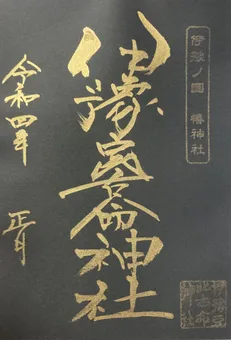 伊豫ノ國 椿神社
伊豫豆比古命神社
令和四年 正月